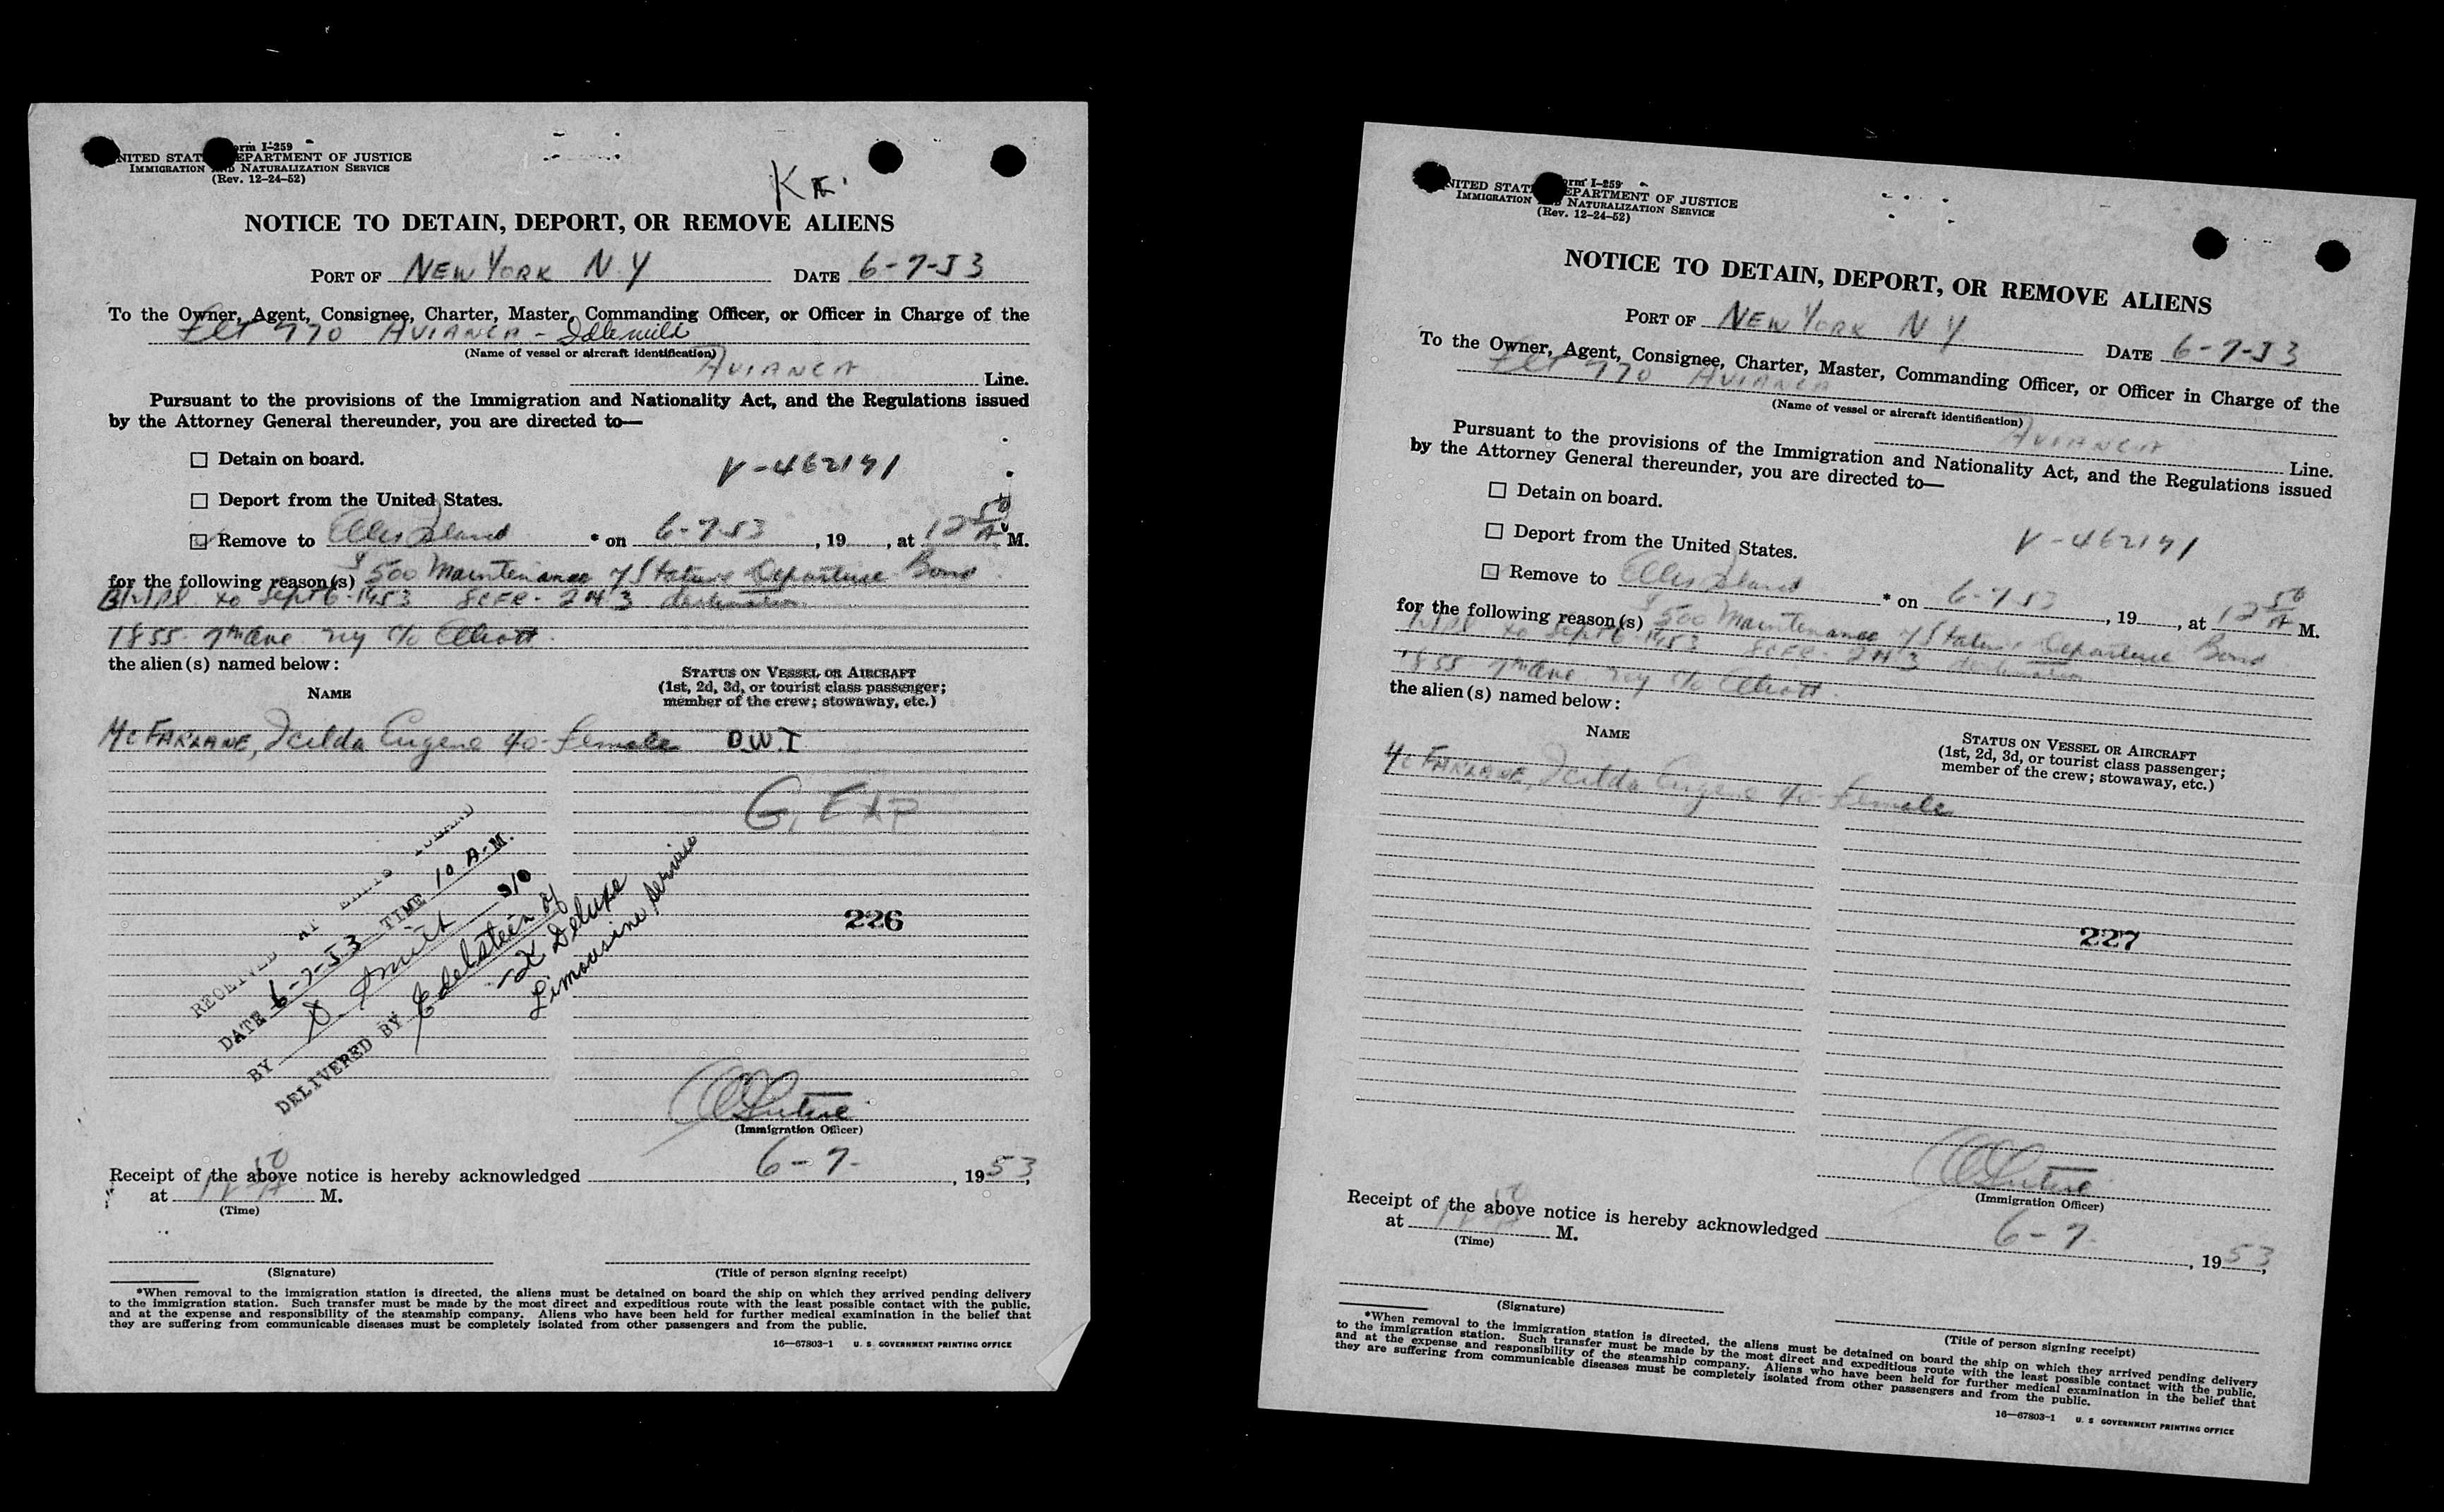 Form I-259
UNITED STATES DEPARTMENT OF JUSTICE
IMMIGRATION AND NATURALIZATION SERVICE
(Rev. 12-24-52)
NOTICE TO DETAIN, DEPORT, OR REMOVE ALIENS
PORT OF NEW YORK N.Y DATE 6-7-53
To the Owner, Agent, Consignee, Charter, Master, Commanding Officer, or Officer in Charge of the
Flt 770 AVIANCA - Idlewild
(Name of vessel or aircraft identification)
AVIANCA Line.
Pursuant to the provisions of the Immigration and Nationality Act, and the Regulations issued
by the Attorney General thereunder, you are directed to—
☐ Detain on board.
V-462191
☐ Deport from the United States.
☑ Remove to Ellis Island * on 6-7-53, 19, at 12 50 A M.
for the following reason(s) $500 Maintenance of Status Departure Bond
to Sept 6-1953 8CFR-
1855-7th Ave NY c/o Elliott
the alien(s) named below:
NAME
STATUS ON VESSEL OR AIRCRAFT
(1st, 2d, 3d, or tourist class passenger;
member of the crew; stowaway, etc.)
MCFARLANE, Icilda Eugene 40-Female
G. EXP
RECEIVED AT ELLIS ISLAND
DATE 6-7-53 TIME 10 A-M.
BY D. Smith
DELIVERED BY Edelstein of
Deluxe
Limousine Service
226
(Immigration Officer)
Receipt of the above notice is hereby acknowledged 6-7-, 1953,
at M.
(Time)
(Signature)
(Title of person signing receipt)
*When removal to the immigration station is directed, the aliens must be detained on board the ship on which they arrived pending delivery
to the immigration station. Such transfer must be made by the most direct and expeditious route with the least possible contact with the public,
and at the expense and responsibility of the steamship company. Aliens who have been held for further medical examination in the belief that
they are suffering from communicable diseases must be completely isolated from other passengers and from the public.
16—67803-1 U. S. GOVERNMENT PRINTING OFFICE
Form I-259
UNITED STATES DEPARTMENT OF JUSTICE
IMMIGRATION AND NATURALIZATION SERVICE
(Rev. 12-24-52)
NOTICE TO DETAIN, DEPORT, OR REMOVE ALIENS
PORT OF NEW YORK N Y DATE 6-7-53
To the Owner, Agent, Consignee, Charter, Master, Commanding Officer, or Officer in Charge of the
Flt 770 AVIANCA
(Name of vessel or aircraft identification)
AVIANCA Line.
Pursuant to the provisions of the Immigration and Nationality Act, and the Regulations issued
by the Attorney General thereunder, you are directed to—
☐ Detain on board.
☐ Deport from the United States.
V-462191
☑ Remove to Ellis Island * on 6-7-53, 19, at 12 50 A M.
for the following reason(s) $500 Maintenance of Status Departure Bond
to Sept 6-1953 8CFR-
1855-7th Ave NY c/o Elliott
the alien(s) named below:
NAME
STATUS ON VESSEL OR AIRCRAFT
(1st, 2d, 3d, or tourist class passenger;
member of the crew; stowaway, etc.)
MCFARLANE, Icilda Eugene 40-Female
227
(Immigration Officer)
Receipt of the above notice is hereby acknowledged 6-7-, 1953,
at M.
(Time)
(Signature)
(Title of person signing receipt)
*When removal to the immigration station is directed, the aliens must be detained on board the ship on which they arrived pending delivery
to the immigration station. Such transfer must be made by the most direct and expeditious route with the least possible contact with the public,
and at the expense and responsibility of the steamship company. Aliens who have been held for further medical examination in the belief that
they are suffering from communicable diseases must be completely isolated from other passengers and from the public.
16—67803-1 U. S. GOVERNMENT PRINTING OFFICE